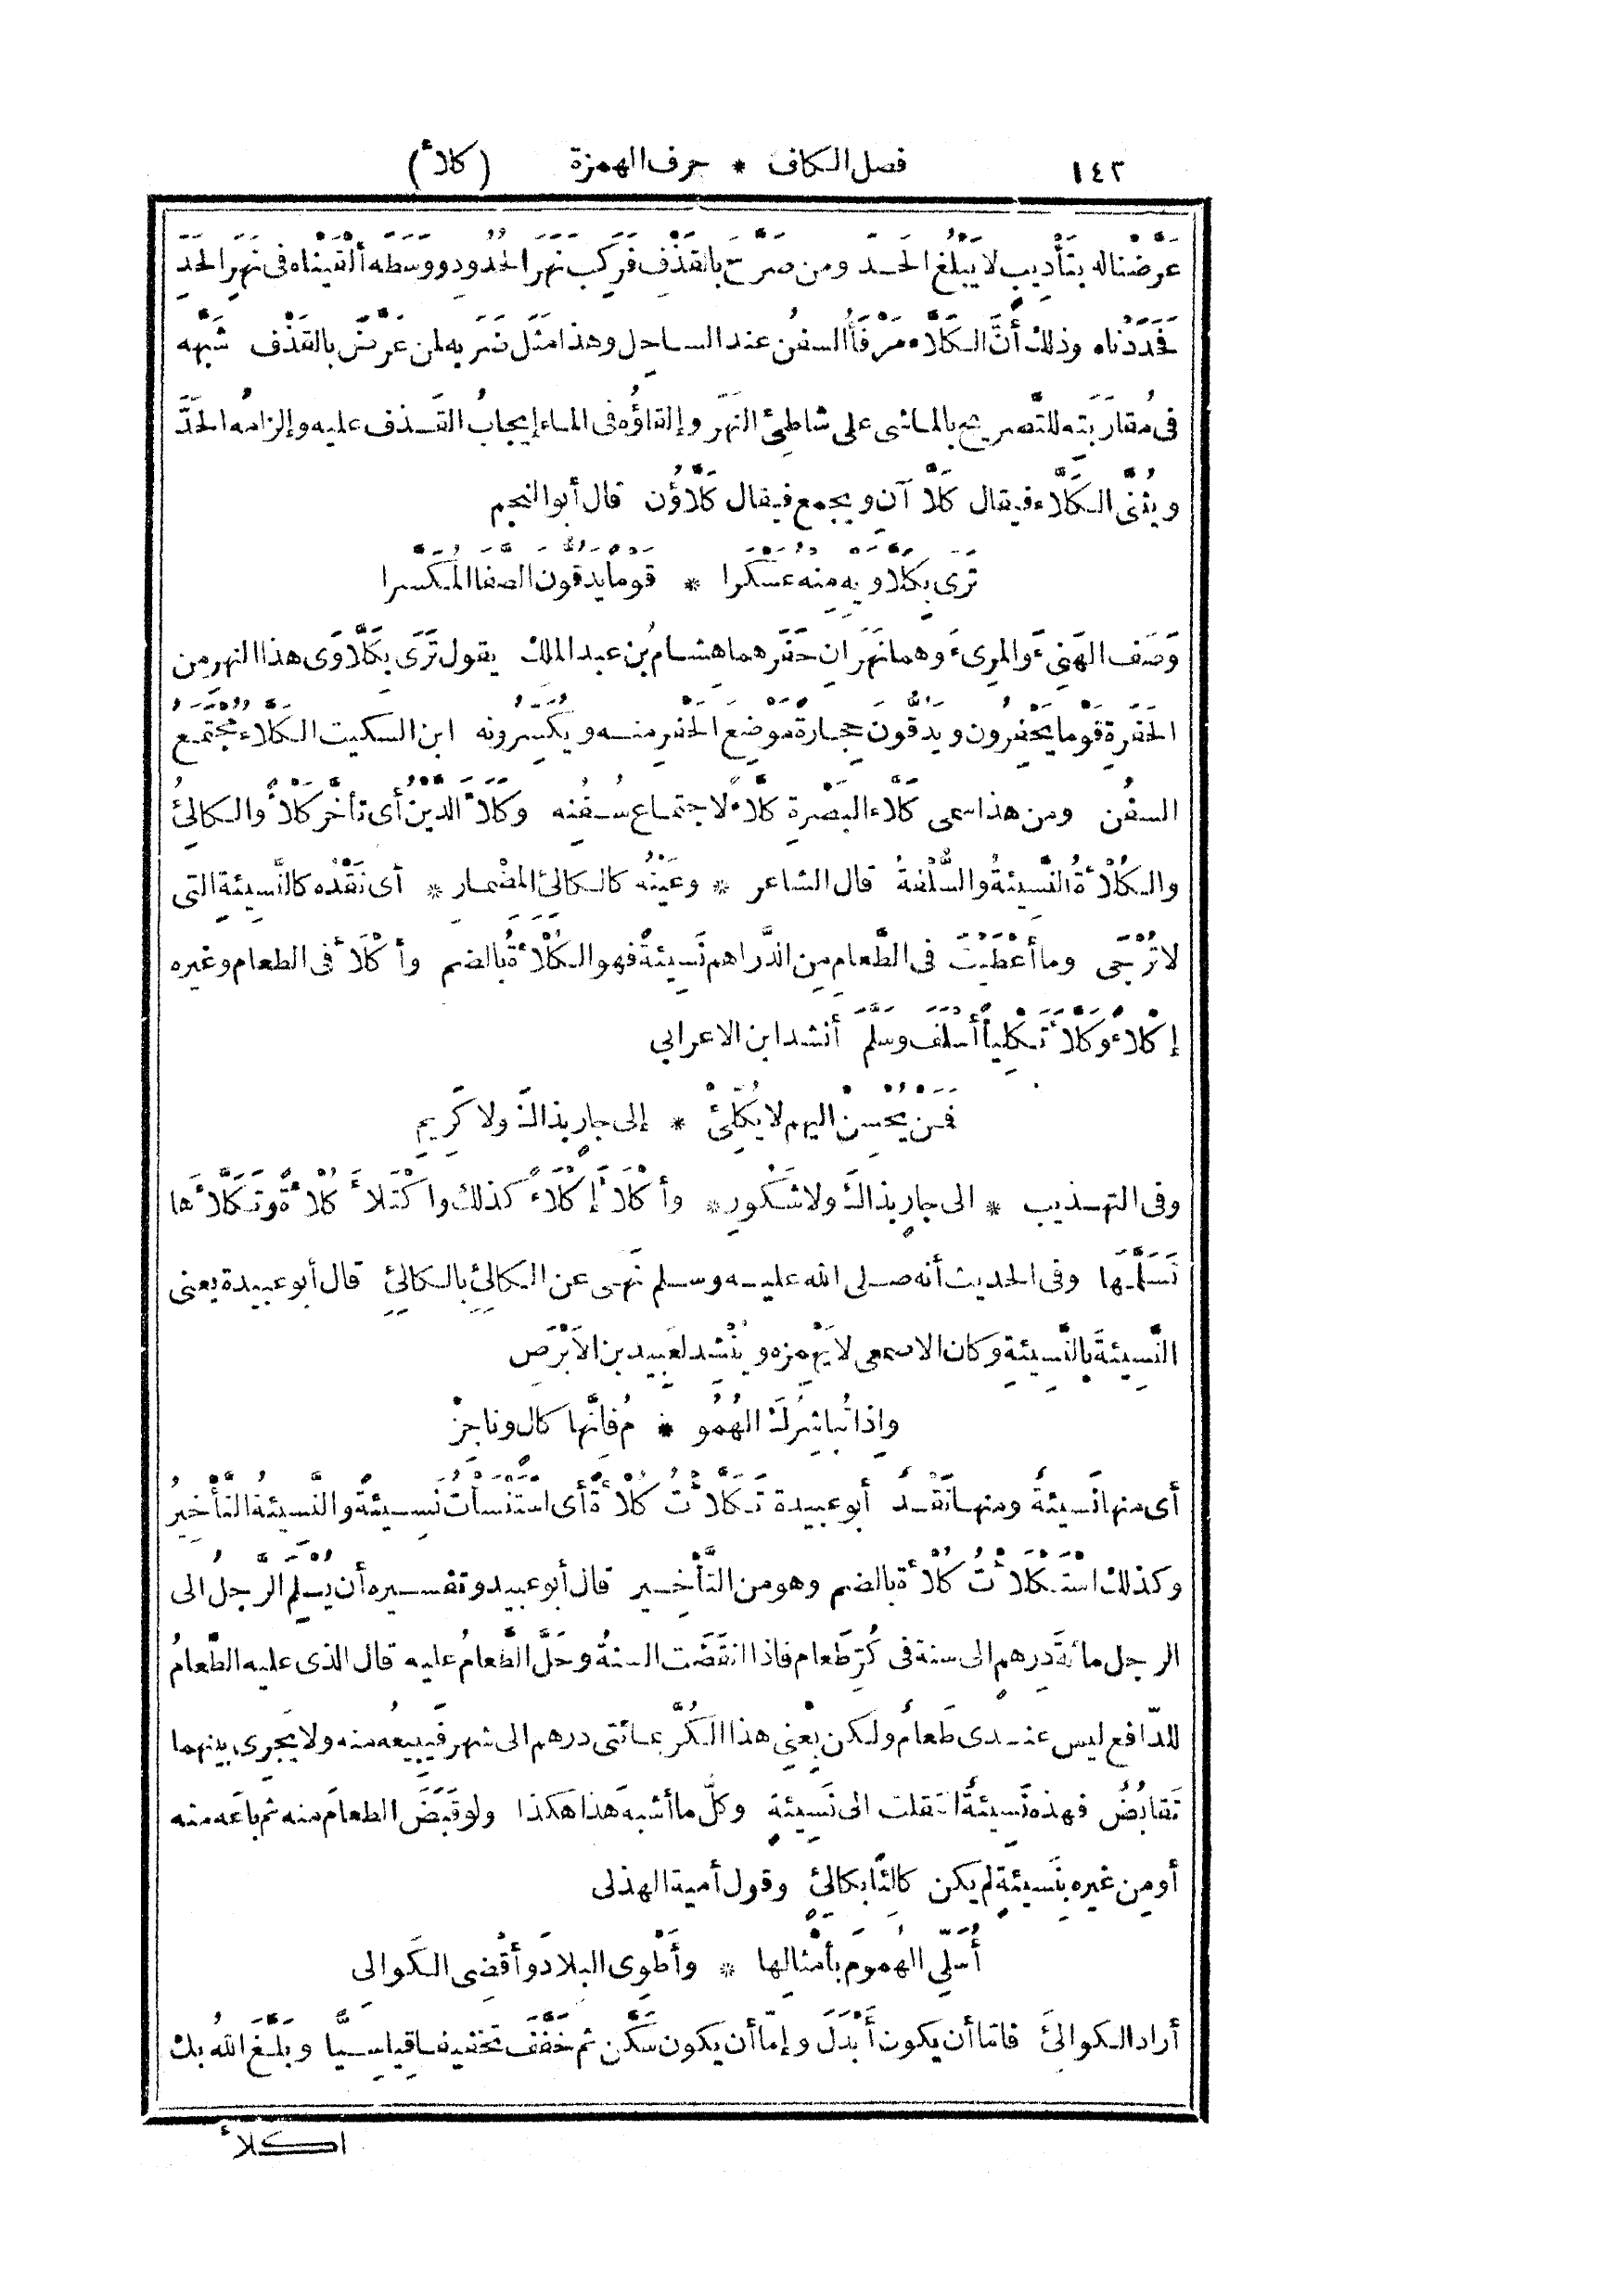 ١٤٢ فصل الكاف * حرف الهمزة (كلأ)
عَرَّضْنا له بتَأْدِيبٍ لا يَبْلُغ الحَدّ ومن صَرَّحَ بالقَذْفِ فَرَكِبَ نَهَرَ الحُدُودِ ووَسَطَه أَلْقَيْناه في نَهَرِ الحَدِّ
فَحَدَدْناه وذلك أَنَّ الكَلَّاءَ مَرْفَأُ السفُن عند الساحِل وهذا مَثَل ضَرَبه لمن عَرَّضَ بالقَذْف شَبَّهه
في مُقارَبَتِه للتَّصريح بالماشي على شاطِئ النَهَر وإلقاؤُه في الماء إيجابُ القَذف عليه وإلزامُه الحَدَّ
ويُثنَّى الكَلَّاء فيقال كَلَّاآنِ ويجمع فيقال كَلَّاؤُن قال أبو النجم
تَرَى بِكَلَّاوَيْهِ مِنه عَسْكَرا * قَوْما يَدُقُّون الصَّفا المُكَسَّرا
وَصَف الهَنِيءَ والمَرِيءَ وهما نَهَرانِ حَفَرهما هِشامُ بن عبد الملك يقول تَرَى بِكَلَّاوَى هذا النهر من
الحَفَرةِ قَوْما يَحْفِرُون ويدقُّونَ حِجارةً مَوْضِعَ الحَفْرِ منه ويُكَسِّرُونه ابن السكيت الكَلَّاءُ مُجْتَمَعُ
السفُن ومن هذا سمى كَلَّاء البَصْرةِ كَلَّاءً لاجتماع سُفُنِه وكَلَأَ الدَّيْنُ أى تأَخَّر كَلْأً والكالِئُ
والكُلْأَةُ النَّسِيئةُ والسُّلْفةُ قال الشاعر * وعَيْنُه كالكالئِ المِضْمار * أى نَقْدُه كالنَّسِيئةِ التى
لا تُرْجَى وما أَعْطَيْتَ في الطَّعامِ مِن الدَّراهم نَسِيئةً فهو الكُلْأَةُ بالضم وأَكْلَأَ في الطعام وغيره
إكْلاءً وكَلَّأَ تَكْلِيأً أَسْلَفَ وسَلَّمَ أنشد ابن الاعرابي
فَمَن يُحْسِنْ اليهم لا يُكَلِّئْ * إلى جارٍ بذالَ ولا كَرِيمِ
وفى التهذيب * الى جارٍ بذاكَ ولا شَكُورِ * وأَكْلَأَ إكْلاءً كذلك واكْتَلَأَ كُلْأَةً وتَكَلَّأَها
تَسَلَّمَها وفى الحديث أنه صلى الله عليه وسلم نَهى عن الكالِئِ بالكالِئِ قال أبو عبيدة يعنى
النَّسِيئةَ بالنَّسِيئةِ وكان الاصمعى لا يَهْمِزه ويُنْشِد لعَبِيدِ بن الاَبْرَصِ
واِذا تُباشِرُكَ الهُمُو * مُ فانَّها كالٍ وناجِزْ
أى منها نَسِيئةٌ ومنها نَقْدٌ أبو عبيدة تَكَلَّأْتُ كُلْأَةً أى اسْتَنْسَأْتُ نَسِيئةً والنَّسِيئةُ التَّأْخِيرُ
وكذلك اسْتَكْلَأْتُ كُلْأَةً بالضم وهو من التَّأْخِير قال أبو عبيد وتفسيره أن يُسْلِمَ الرَّجلُ الى
الرجل مائةَ دِرهمٍ الى سنة في كُرِّ طَعام فاذا انقَضَت السنةُ وحَلَّ الطَّعامُ عليه قال الذى عليه الطَّعامُ
للدّافع ليس عندى طَعامٌ ولكن بِعْنِي هذا الكُرَّ بمائتى درهم الى شهر فيَبِيعُه منه ولا يَجرِى بينهما
تَقابُضٌ فهذه نَسِيئةٌ انتقلت الى نَسِيئةٍ وكلُّ ما أشبه هذا هكذا ولو قَبَضَ الطعامَ منه ثم باعَه منه
أو مِن غيره بنَسِيئةٍ لم يكن كالِئًا بكالِئٍ وقول أمية الهذلى
أُسَلِّي الهُمومَ بأَمْثالِها * وأَطْوِى البلادَ وأَقْضِى الكَوالِى
أراد الكوالِئَ فامّا أن يكون أَبْدَلَ وإمّا أن يكون سَكَّن ثم خَفَّفَ تخفيفا قياسيًّا وبَلَغَ اللهُ بك
اكلأ